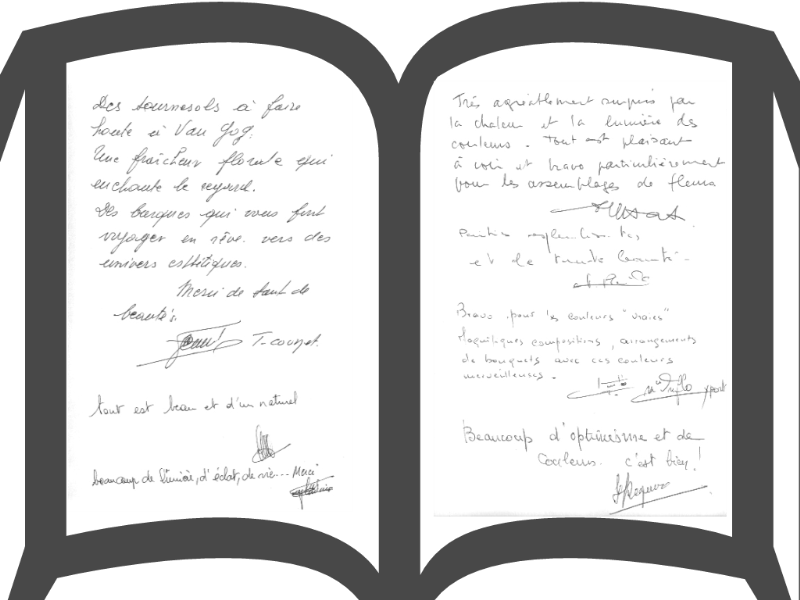 Des tournesols à faire
honte à Van Gog.
Une fraîcheur florale qui
enchante le regard.
Des barques qui vous font
voyager en rêve vers des
univers esthétiques.
Merci de tant de
beautés.
tout est beau et d'un naturel
beaucoup de lumière, d'éclat, de vie... Merci
Très agréablement surpris par
la chaleur et la lumière des
couleurs. Tout est plaisant
à voir et bravo particulièrement
pour les assemblages de fleurs
et de toute beauté.
Bravo pour les couleurs "vraies"
Magnifiques compositions, arrangements
de bouquets avec ces couleurs
merveilleuses.
Beaucoup d'optimisme et de
Couleurs. c'est bien!